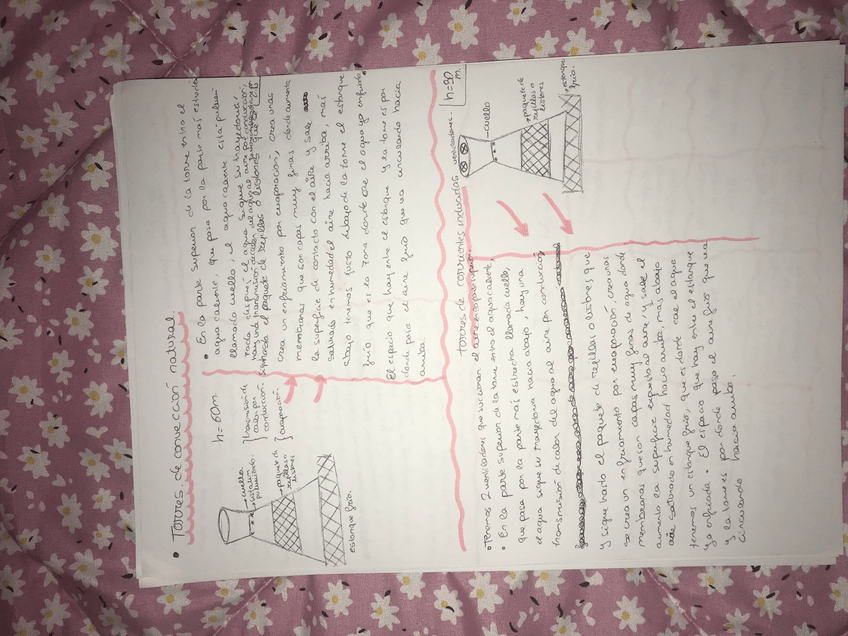 • Torres de convección natural.
h = 60m.
→ cuello
→ agua pulverizada.
→ paquete de rejillas o listones
estanque frío.
} transmisión de calor por conducción.
} evaporación.
• En la parte superior de la torre entra el
agua caliente, que pasa por la parte más estrecha
llamada cuello, el agua caliente está pulveri
zada, después el agua sigue su trayectoria,
hay una transmisión de calor del agua al aire por conducción,
el paquete de rejillas o listones que
crea un enfriamiento por evaporación, crea unas
membranas que son capas muy finas donde aumenta
la superficie de contacto con el aire y sale
saturado en humedad el aire hacia arriba, más
abajo tenemos justo debajo de la torre el estanque
frío que es la zona donde cae el agua ya enfriada.
El espacio que hay entre el estanque y la torre es por
donde pasa el aire frío que va circulando hacia
arriba.
Torres de corrientes inducidas
h = 30 m.
ventiladores.
→ cuello
→ paquete de rejillas o listones
estanque frío.
• Tenemos 2 ventiladores que succionan el aire
• En la parte superior de la torre entra el agua caliente,
que pasa por la parte más estrecha llamada cuello,
el agua sigue su trayectoria hacia abajo, hay una
transmisión de calor del agua al aire por conducción
y sigue hasta el paquete de rejillas o listones que
se crea un enfriamiento por evaporación, crea unas
membranas que son capas muy finas de agua donde
aumenta la superficie el aire, y sale el
aire saturado en humedad hacia arriba, más abajo
tenemos un estanque frío, que es donde cae el agua
ya enfriada. El espacio que hay entre el estanque
y la torre es por donde pasa el aire frío que va
circulando hacia arriba.